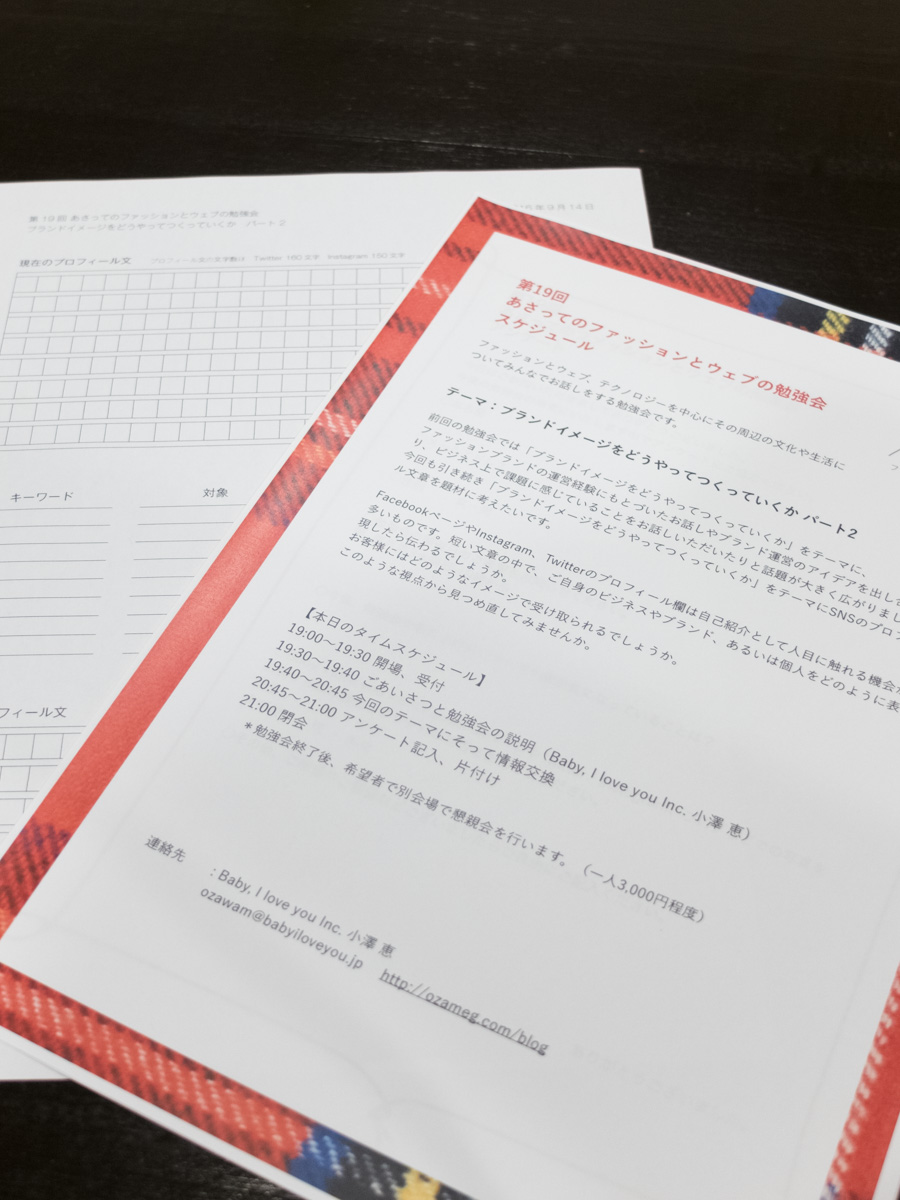 第19回 あさってのファッションとウェブの勉強会
ブランドイメージをどうやってつくっていくか パート2
年9月14日
現在のプロフィール文 プロフィール文の文字数は Twitter 160文字 Instagram 150文字
キーワード 対象
フィール文
第19回
あさってのファッションとウェブの勉強会
スケジュール
ファッションとウェブ、テクノロジーを中心にその周辺の文化や生活に
ついてみんなでお話しをする勉強会です。
テーマ：ブランドイメージをどうやってつくっていくか パート2
前回の勉強会では「ブランドイメージをどうやってつくっていくか」をテーマに、
ファッションブランドの運営経験にもとづいたお話しやブランド運営のアイデアを出し
り、ビジネス上で課題に感じていることをお話しいただいたりと話題が大きく広がりまし
今回も引き続き「ブランドイメージをどうやってつくっていくか」をテーマにSNSのプロフ
ル文章を題材に考えたいです。
FacebookページやInstagram、Twitterのプロフィール欄は自己紹介として人目に触れる機会が
多いものです。短い文章の中で、ご自身のビジネスやブランド、あるいは個人をどのように表
現したら伝わるでしょうか。
お客様にはどのようなイメージで受け取られるでしょうか。
このような視点から見つめ直してみませんか。
【本日のタイムスケジュール】
19:00〜19:30 開場、受付
19:30〜19:40 ごあいさつと勉強会の説明（Baby, I love you Inc. 小澤 恵）
19:40〜20:45 今回のテーマにそって情報交換
20:45〜21:00 アンケート記入、片付け
21:00 閉会
＊勉強会終了後、希望者で別会場で懇親会を行います。（一人3,000円程度）
連絡先
: Baby, I love you Inc. 小澤 恵
ozawam@babyiloveyou.jp http://ozameg.com/blog